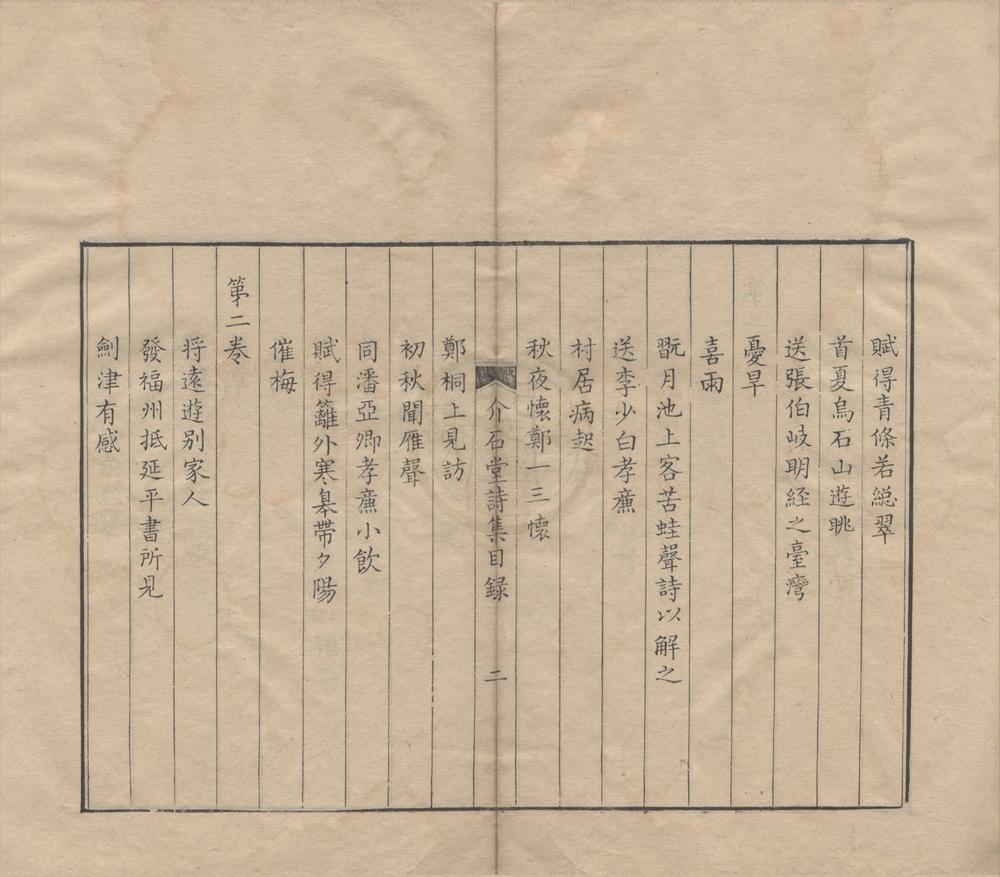 賦得青條若緫翠
首夏烏石山遊眺
送張伯岐明經之臺灣
憂旱
喜雨
翫月池上客苦蛙聲詩以解之
送李少白孝廉
村居病起
秋夜懷鄭一三懷
介石堂詩集目録 二
鄭桐上見訪
初秋聞雁聲
同潘亞卿孝廉小飲
賦得籬外寒皋帶夕陽
催梅
第二卷
将遠遊别家人
發福州抵延平書所見
劍津有感